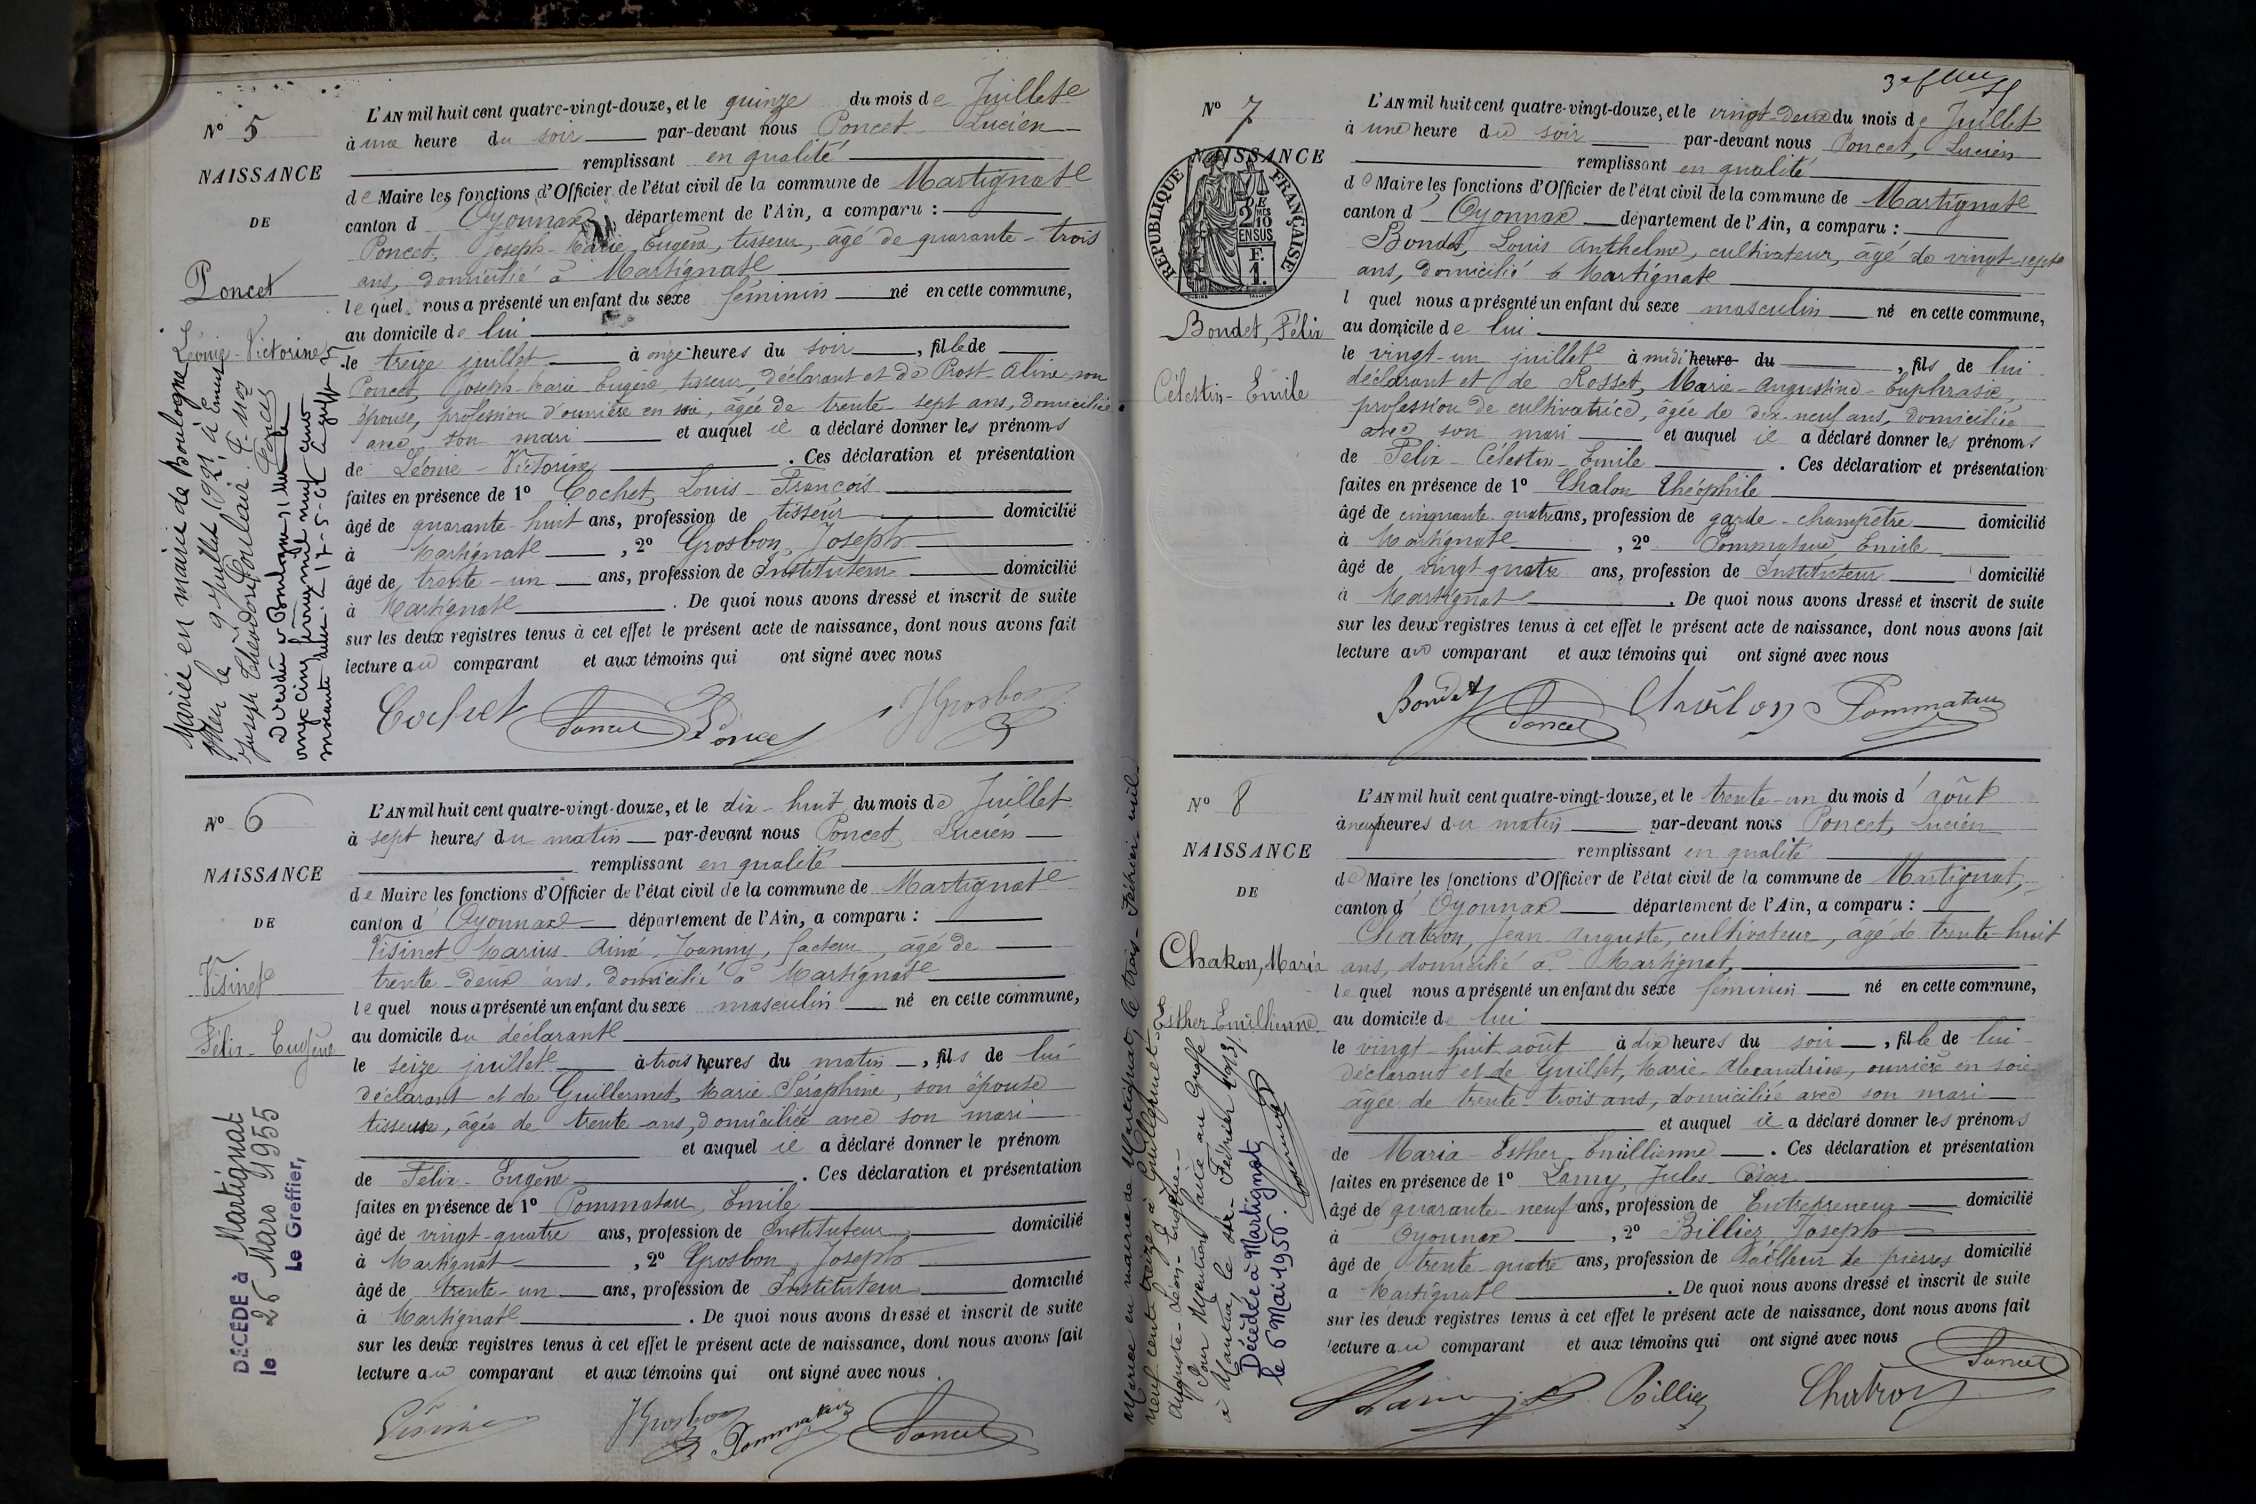 N° 5
NAISSANCE
DE
Poncet
Léonie-Victorine
Mariée en mairie de Boulogne
le 9 juillet 1921 à
Joseph Théodore
Poncet
L'AN mil huit cent quatre-vingt-douze, et le quinze du mois de Juillet
à une heure du soir par-devant nous Poncet Lucien
remplissant en qualité
de Maire les fonctions d'Officier de l'état civil de la commune de Martignat
canton d Oyonnax département de l'Ain, a comparu :
Poncet, Joseph-Marie Eugène, tisseur, âgé de quarante-trois
ans, domicilié à Martignat
lequel nous a présenté un enfant du sexe féminin né en cette commune,
au domicile de lui
le treize juillet à onze heures du soir, fille de
Poncet, Joseph-Marie Eugène, tisseur, déclarant et de Prost-Aline son
épouse, profession d'ouvrière en soie, âgée de trente-sept ans, domiciliée
avec son mari et auquel il a déclaré donner les prénoms
de Léonie-Victorine. Ces déclaration et présentation
faites en présence de 1° Cochet, Louis-François
âgé de quarante-huit ans, profession de tisseur domicilié
à Martignat, 2° Grosbon, Joseph
âgé de trente-un ans, profession de Instituteur domicilié
à Martignat. De quoi nous avons dressé et inscrit de suite
sur les deux registres tenus à cet effet le présent acte de naissance, dont nous avons fait
lecture au comparant et aux témoins qui ont signé avec nous
Cochet Poncet Poncet JGrosbon
N° 6
NAISSANCE
DE
Visinet
Félix-Eugène
DÉCÉDÉ à Martignat
le 26 Mars 1955
Le Greffier,
L'AN mil huit cent quatre-vingt-douze, et le dix-huit du mois de Juillet
à sept heures du matin par-devant nous Poncet, Lucien
remplissant en qualité
de Maire les fonctions d'Officier de l'état civil de la commune de Martignat
canton d'Oyonnax département de l'Ain, a comparu :
Visinet Marius-Aimé-Joanny, facteur, âgé de
trente-deux ans, domicilié à Martignat
lequel nous a présenté un enfant du sexe masculin né en cette commune,
au domicile du déclarant
le seize juillet à trois heures du matin, fils de lui
déclarant et de Guillermet, Marie Séraphine, son épouse
tisseuse, âgée de trente ans, domiciliée avec son mari
et auquel il a déclaré donner le prénom
de Félix-Eugène. Ces déclaration et présentation
faites en présence de 1° Pommatau, Emile
âgé de vingt-quatre ans, profession de Instituteur domicilié
à Martignat, 2° Grosbon, Joseph
âgé de trente-un ans, profession de Instituteur domicilié
à Martignat. De quoi nous avons dressé et inscrit de suite
sur les deux registres tenus à cet effet le présent acte de naissance, dont nous avons fait
lecture au comparant et aux témoins qui ont signé avec nous.
Visinet JGrosbon Pommatau Poncet
N° 7
NAISSANCE
RÉPUBLIQUE FRANÇAISE
2 DES 10 EN SUS
F. 1.
Bondet, Félix
Célestin-Emile
L'AN mil huit cent quatre-vingt-douze, et le vingt-deux du mois de Juillet
à une heure du soir par-devant nous Poncet, Lucien
remplissant en qualité
de Maire les fonctions d'Officier de l'état civil de la commune de Martignat
canton d'Oyonnax département de l'Ain, a comparu :
Bondet, Louis Anthelme, cultivateur, âgé de vingt-sept
ans, domicilié à Martignat
l quel nous a présenté un enfant du sexe masculin né en cette commune,
au domicile de lui
le vingt-un juillet à midi heure du, fils de lui
déclarant et de Rosset, Marie-Augustine-Euphrasie,
profession de cultivatrice, âgée de dix-neuf ans, domiciliée
avec son mari et auquel il a déclaré donner les prénoms
de Félix-Célestin-Emile. Ces déclaration et présentation
faites en présence de 1° Chalon Théophile
âgé de cinquante-quatre ans, profession de garde-champêtre domicilié
à Martignat, 2° Pommatau, Emile
âgé de vingt-quatre ans, profession de Instituteur domicilié
à Martignat. De quoi nous avons dressé et inscrit de suite
sur les deux registres tenus à cet effet le présent acte de naissance, dont nous avons fait
lecture au comparant et aux témoins qui ont signé avec nous
Bondet Poncet Chalon Pommatau
N° 8
NAISSANCE
DE
Chatron, Maria
Esther-Emillienne
Mariée en mairie de Martignat, le trois Février mil
neuf cent treize à Guillermet
Auguste-Léon-Eugène.
Pour Mention faite au Greffe
à Nantua, le six Février 1913.
Décédée à Martignat
le 6 Mai 1956.
L'AN mil huit cent quatre-vingt-douze, et le trente-un du mois d'août
à neuf heures du matin par-devant nous Poncet, Lucien
remplissant en qualité
de Maire les fonctions d'Officier de l'état civil de la commune de Martignat,
canton d'Oyonnax département de l'Ain, a comparu :
Chatron, Jean-Auguste, cultivateur, âgé de trente-huit
ans, domicilié à Martignat,
lequel nous a présenté un enfant du sexe féminin né en cette commune,
au domicile de lui
le vingt-huit août à dix heures du soir, fille de lui
déclarant et de Guillet, Marie-Alexandrine, ouvrière en soie
âgée de trente-trois ans, domiciliée avec son mari
et auquel il a déclaré donner les prénoms
de Maria-Esther-Emillienne. Ces déclaration et présentation
faites en présence de 1° Lamy, Jules-César
âgé de quarante-neuf ans, profession de Entrepreneur domicilié
à Oyonnax, 2° Billiez, Joseph
âgé de trente-quatre ans, profession de Tailleur de pierres domicilié
a Martignat. De quoi nous avons dressé et inscrit de suite
sur les deux registres tenus à cet effet le présent acte de naissance, dont nous avons fait
lecture au comparant et aux témoins qui ont signé avec nous
Poncet
Billiez Chatron